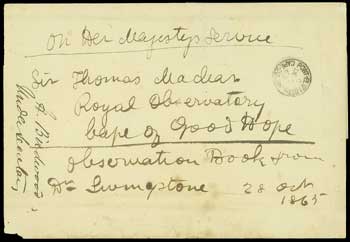 On Her Majestys Service
Sir Thomas Maclear
Royal Observatory
Cape of Good Hope
Observation Book from
Dr Livingstone 28 Oct
1865